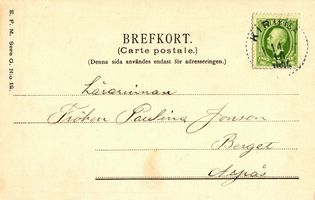 E. F. M. Serie G. No 12.
BREFKORT.
(Carte postale.)
(Denna sida användes endast för adresseringen.)
Lärarinnan
Fröken Paulina Jonson
Berget
Aspås